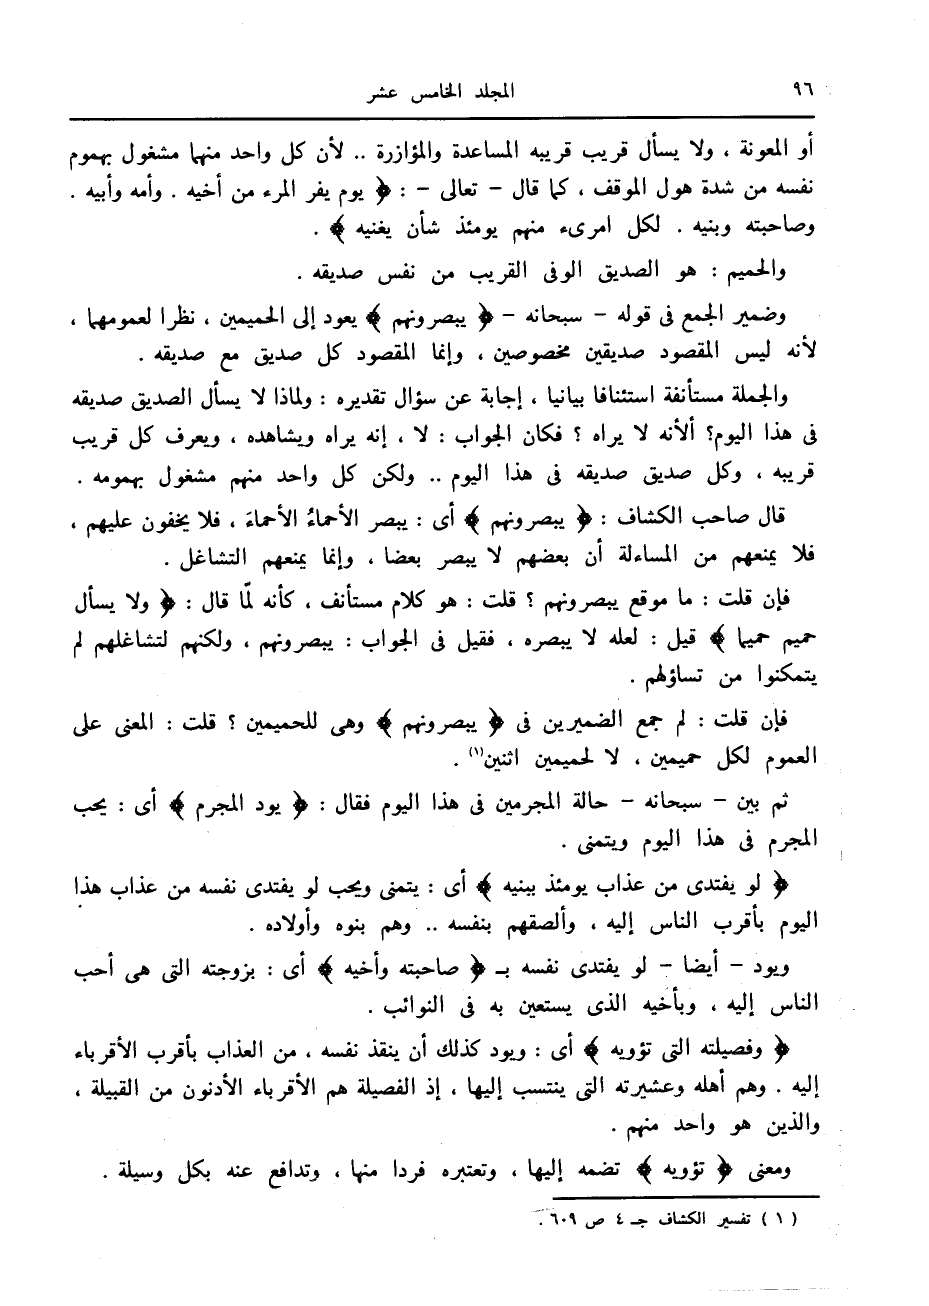 ٩٦ المجلد الخامس عشر
أو المعونة ، ولا يسأل قريب قريبه المساعدة والمؤازرة .. لأن كل واحد منهما مشغول بهموم
نفسه من شدة هول الموقف ، كما قال – تعالى – : ﴿ يوم يفر المرء من أخيه . وأمه وأبيه .
وصاحبته وبنيه . لكل امرىء منهم يومئذ شأن يغنيه ﴾ .
والحميم : هو الصديق الوفى القريب من نفس صديقه .
وضمير الجمع فى قوله – سبحانه – ﴿ يبصرونهم ﴾ يعود إلى الحميمين ، نظرا لعمومهما ،
لأنه ليس المقصود صديقين مخصوصين ، وإنما المقصود كل صديق مع صديقه .
والجملة مستأنفة استئنافا بيانيا ، إجابة عن سؤال تقديره : ولماذا لا يسأل الصديق صديقه
فى هذا اليوم؟ ألأنه لا يراه ؟ فكان الجواب : لا ، إنه يراه ويشاهده ، ويعرف كل قريب
قريبه ، وكل صديق صديقه فى هذا اليوم .. ولكن كل واحد منهم مشغول بهمومه .
قال صاحب الكشاف : ﴿ يبصرونهم ﴾ أى : يبصر الأحماءُ الأحماءَ ، فلا يخفون عليهم ،
فلا يمنعهم من المساءلة أن بعضهم لا يبصر بعضا ، وإنما يمنعهم التشاغل .
فإن قلت : ما موقع يبصرونهم ؟ قلت : هو كلام مستأنف ، كأنه لمّا قال : ﴿ ولا يسأل
حميم حميما ﴾ قيل : لعله لا يبصره ، فقيل فى الجواب : يبصرونهم ، ولكنهم لتشاغلهم لم
يتمكنوا من تساؤلهم .
فإن قلت : لم جمع الضميرين فى ﴿ يبصرونهم ﴾ وهى للحميمين ؟ قلت : المعنى على
العموم لكل حميمين ، لا لحميمين اثنين(١) .
ثم بين – سبحانه – حالة المجرمين فى هذا اليوم فقال : ﴿ يود المجرم ﴾ أى : يحب
المجرم فى هذا اليوم ويتمنى .
﴿ لو يفتدى من عذاب يومئذ ببنيه ﴾ أى : يتمنى ويحب لو يفتدى نفسه من عذاب هذا
اليوم بأقرب الناس إليه ، وألصقهم بنفسه .. وهم بنوه وأولاده .
ويود – أيضا – لو يفتدى نفسه بـ ﴿ صاحبته وأخيه ﴾ أى : بزوجته التى هى أحب
الناس إليه ، وبأخيه الذى يستعين به فى النوائب .
﴿ وفصيلته التى تؤويه ﴾ أى : ويود كذلك أن ينقذ نفسه ، من العذاب بأقرب الأقرباء
إليه . وهم أهله وعشيرته التى ينتسب إليها ، إذ الفصيلة هم الأقرباء الأدنون من القبيلة ،
والذين هو واحد منهم .
ومعنى ﴿ تؤويه ﴾ تضمه إليها ، وتعتبره فردا منها ، وتدافع عنه بكل وسيلة .
( ١ ) تفسير الكشاف جـ ٤ ص ٦٠٩ .